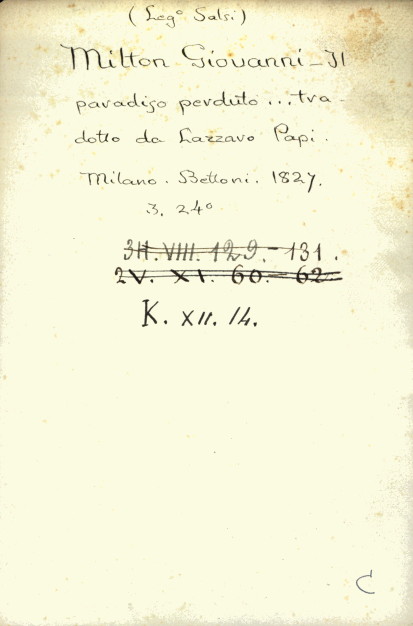 (Leg° Salsi)
Milton Giovanni - Il
paradiso perduto ... tra-
dotto da Lazzaro Papi.
Milano. Bettoni. 1827.
3. 24°
3H. VIII. 129. - 131.
2V. XI. 60. - 62.
K. XII. 14.
C